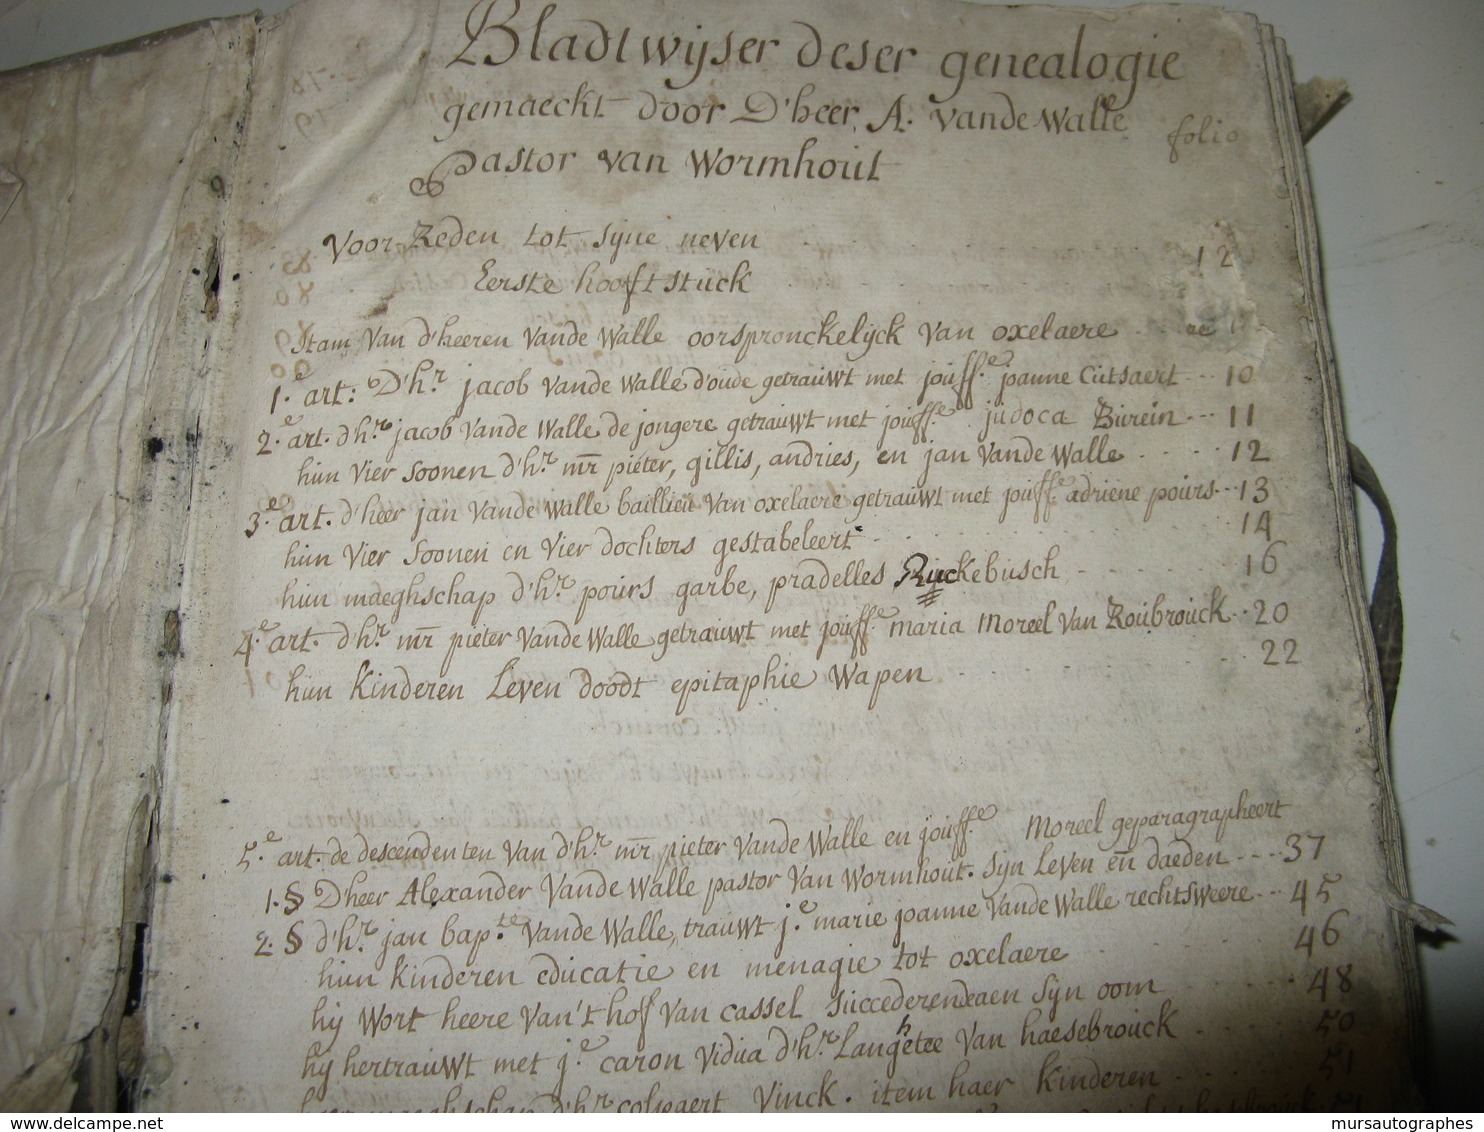 Bladtwijser deser genealogie
gemaeckt door D'heer A. vande Walle
folio
Pastor van Wormhout
Voor-Reden tot sijne neven 12
Eerste hooft stuck
Stam Van d'heeren Vande Walle oorspronckelijck van oxelaere
1.e art: D'h.r jacob vande walle d'oude getrauwt met jouff.e joanne Cutsaert 10
2.e art. d'h.r jacob vande Walle de jongere getrauwt met jouff.e judoca Burein 11
hun Vier Soonen d'h.r mr pieter, gillis, andries, en jan Vande Walle 12
3.e art. d'heer jan Vande Walle baillieu Van oxelaere getrauwt met jouff.e adriene pours 13
hun Vier Soonen en Vier dochters gestabeleert 14
hun maeghschap d'h.r pours garbe, pradelles Ryckebusch 16
4.e art. d'h.r mr pieter Vande Walle getrauwt met jouff.e maria Moreel Van Roubrouck 20
hun Kinderen Leven doodt epitaphie Wapen 22
5.e art. de descendenten Van d'h.r mr pieter Vande Walle en jouff.e Moreel geparagrapheert
1. § D'heer Alexander Vande Walle pastor Van Wormhout. Sijn Leven en daeden 37
2. § d'h.r jan bap.te Vande Walle, trauwt j.e marie joanne Vande Walle rechtsweere 45
hun Kinderen educatie en menagie tot oxelaere 46
hij Wort heere Van't hof Van Cassel Succederende aen Sijn oom 48
hij hertrauwt met j.e caron Vidua d'h.r Langhetee Van haesebrouck 50
haer maeghschap d'h.r colpaert Vinck. item haer Kinderen 51
www.delcampe.net
mursautographes